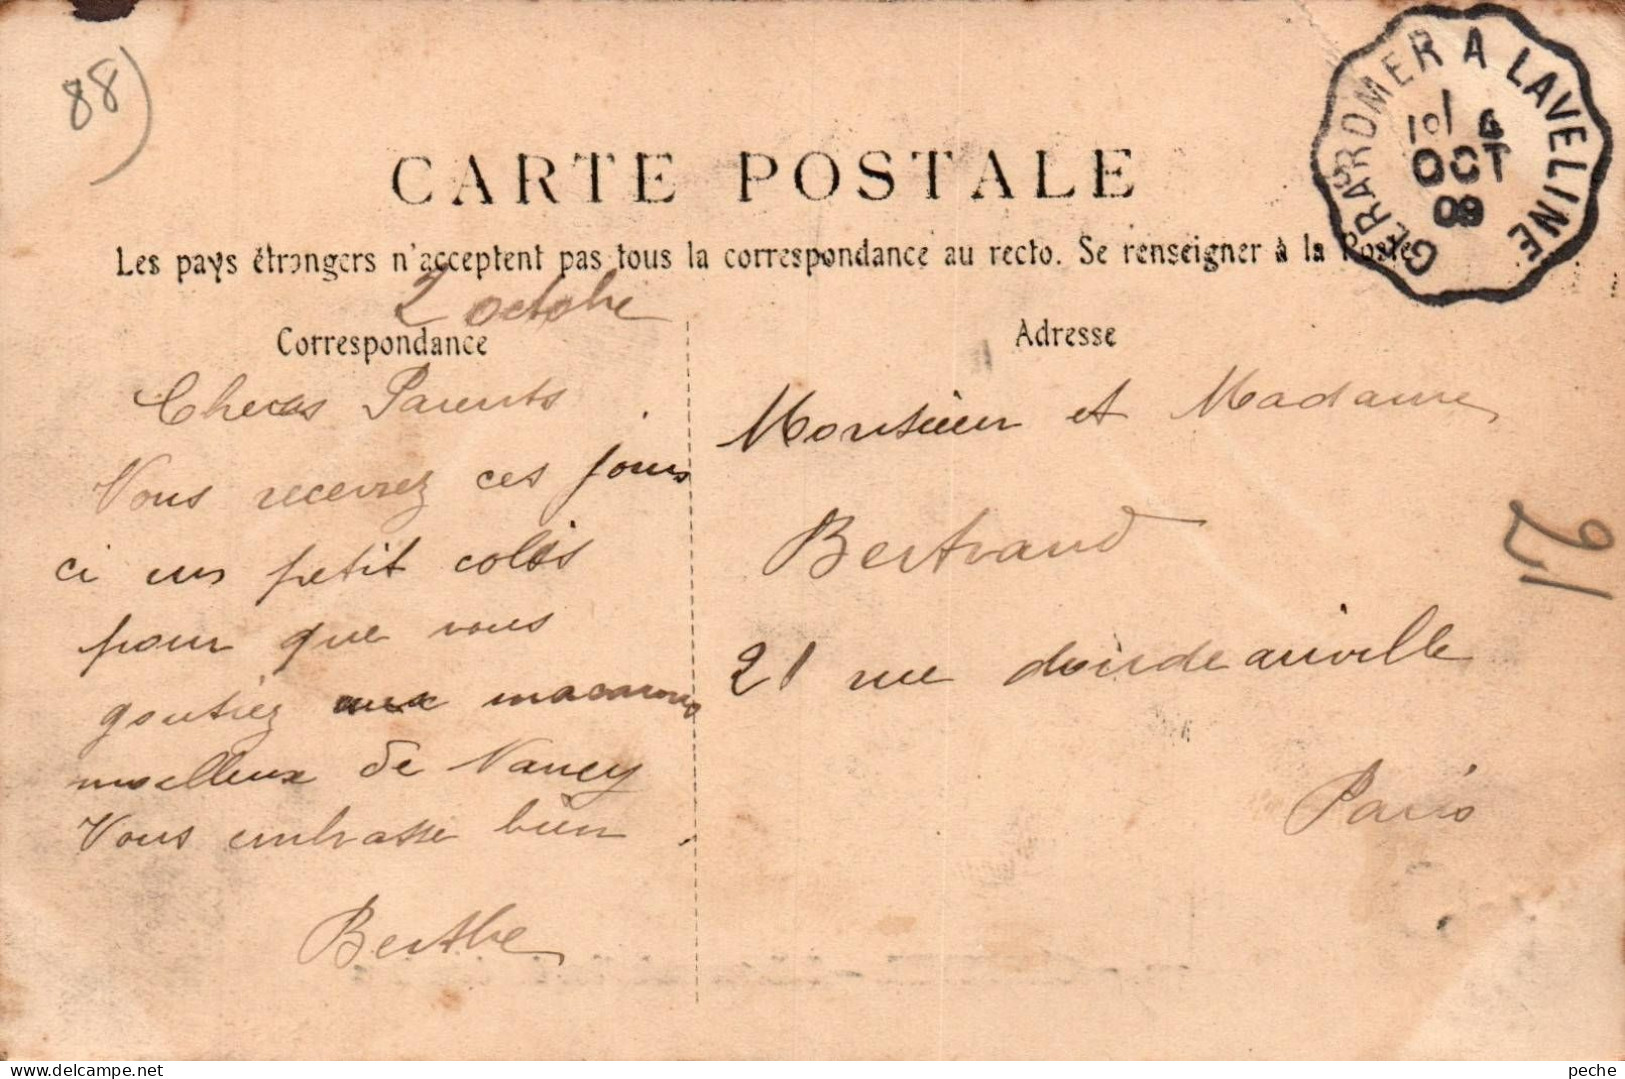 88)
GERARDMER A LAVELINE
OCT
09
CARTE POSTALE
Les pays étrangers n'acceptent pas tous la correspondance au recto. Se renseigner à la Poste
2 octobre
Correspondance
Adresse
Cheres Parents
Vous recevrez ces jours
ci un petit colis
pour que vous
goutiez aux macarons
moelleux de Nancy
Vous embrasse bien.
Berthe
Monsieur et Madame
Bertrand
21 rue doudeauville
Paris
21
peche